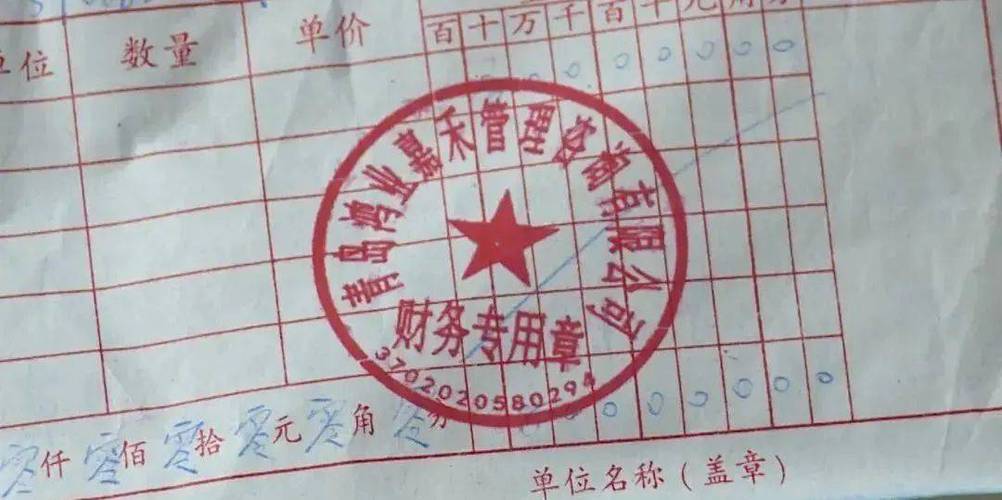 单位 数量 单价 百十万千百十元角分
0 0 0 0 0 0
青岛鸿业嘉禾管理咨询有限公司
财务专用章
3702020580294
0 0 0 0 0 0 0
零仟零佰零拾零元零角零分
单位名称(盖章)